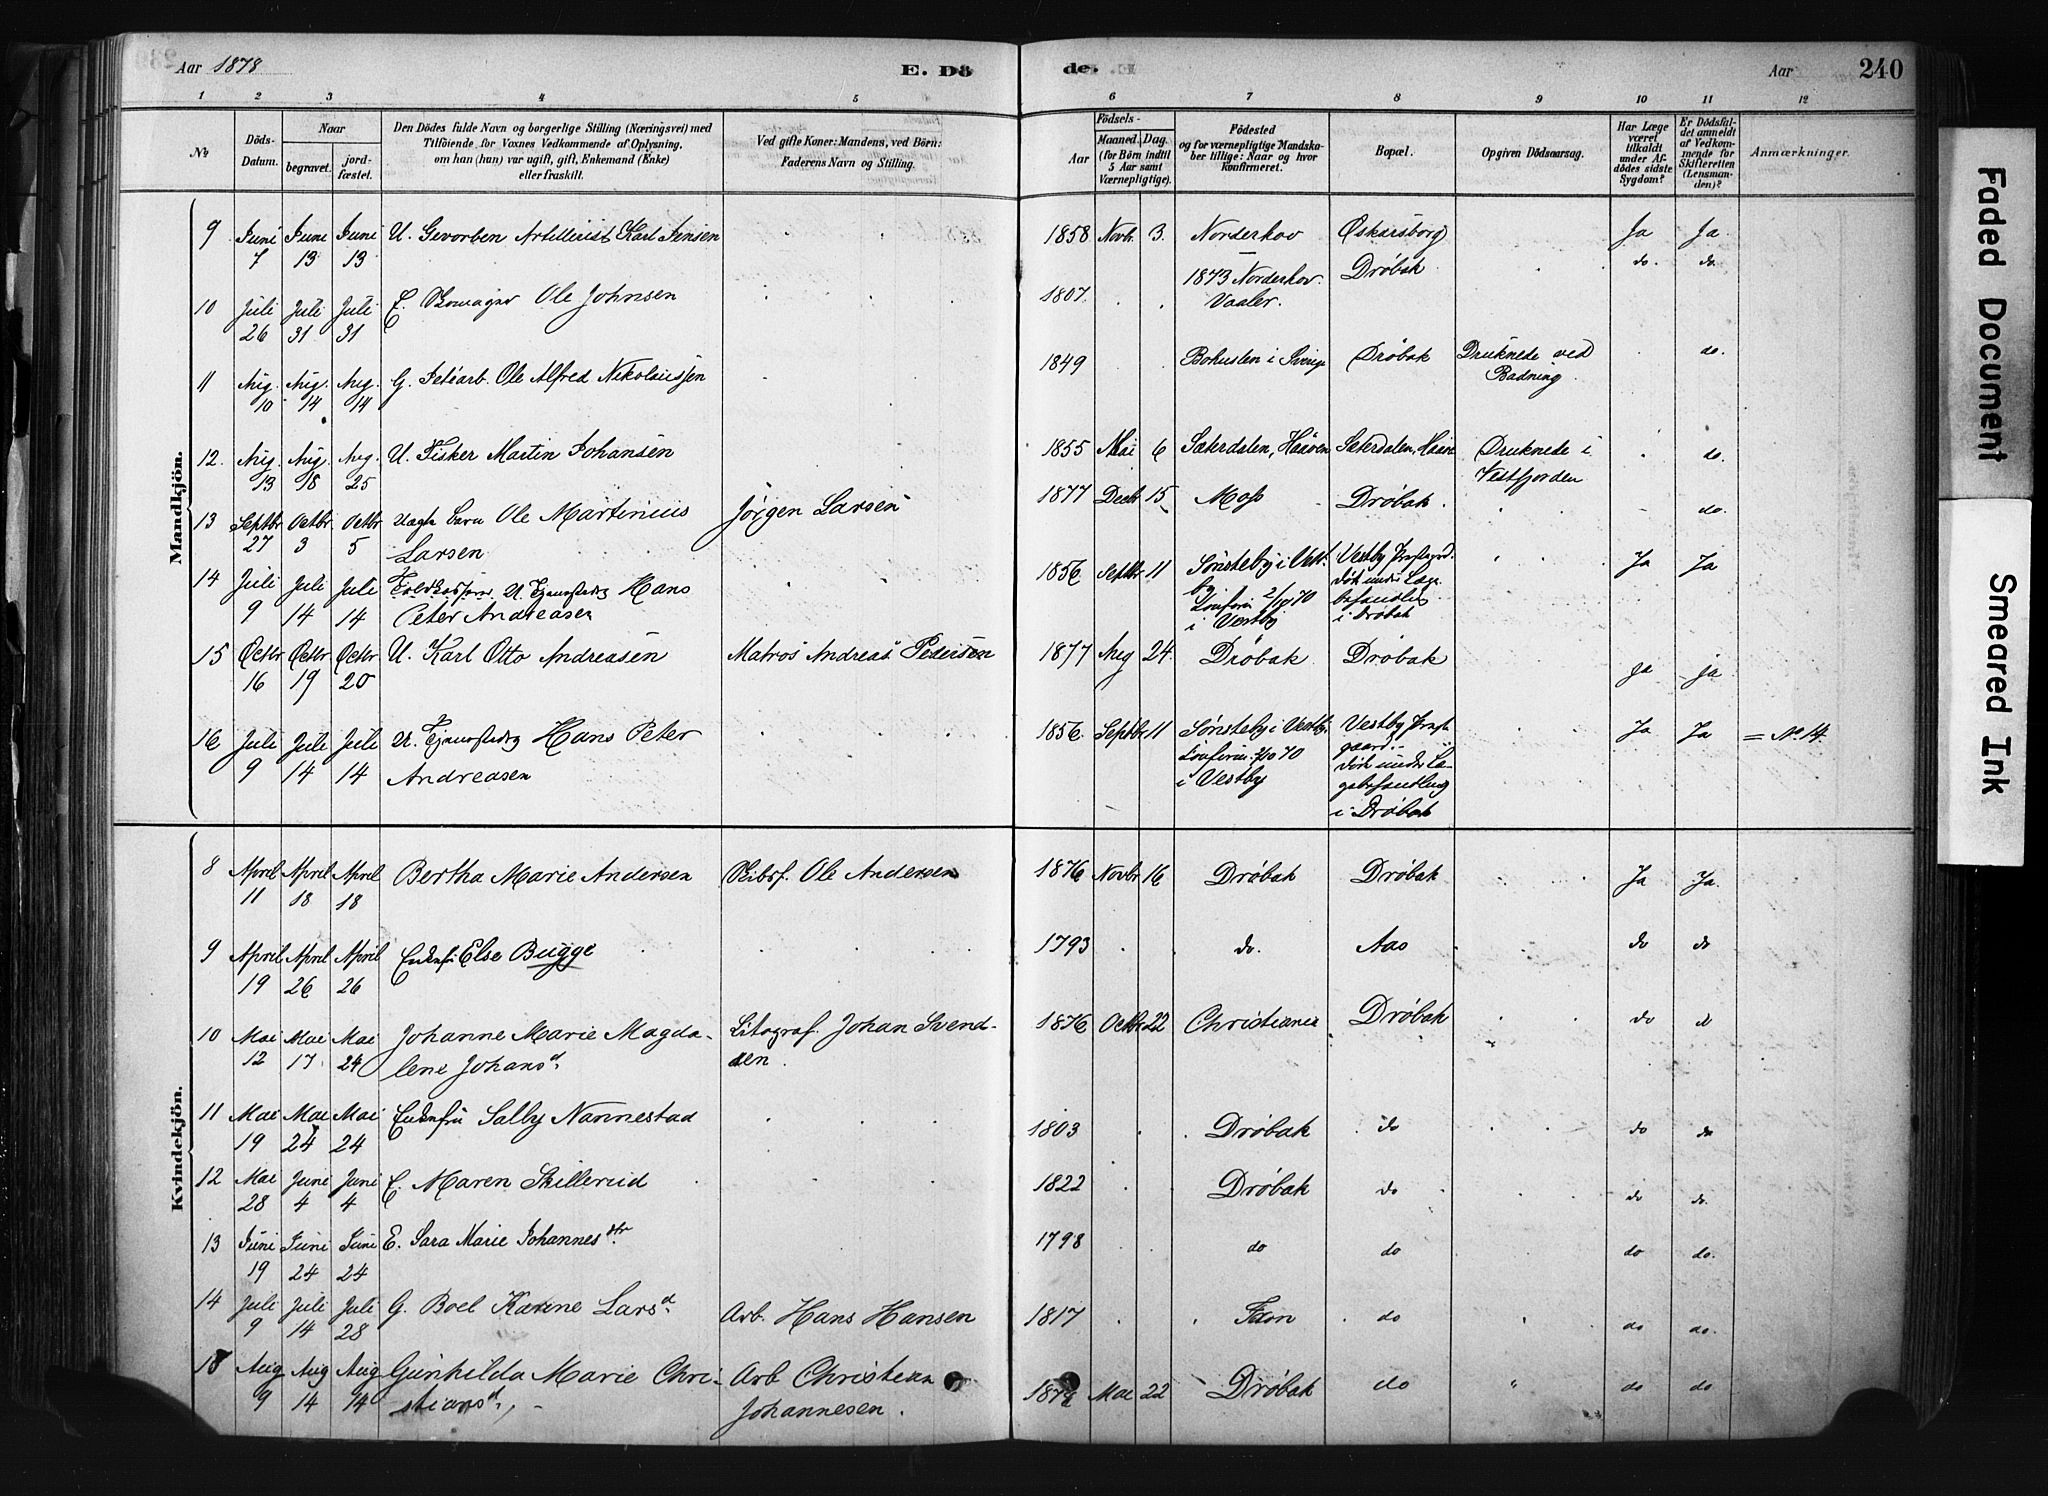 Aar 1878
E. Dö
de.
Aar
240
1 2 3 4 5 6 7 8 9 10 11 12
No
Döds-
Datum.
Naar
begravet.
jord-
fæstet.
Den Dödes fulde Navn og borgerlige Stilling (Næringsvei) med
Tilföiende for Voxnes Vedkommende af Oplysning,
om han (hun) var ugift, gift, Enkemand (Enke)
eller fraskilt.
Ved gifte Koner: Mandens, ved Börn:
Faderens Navn og Stilling.
Födsels-
Aar
Maaned. Dag.
(for Børn indtil
5 Aar samt
Værnepligtige).
Födested
og for værnepligtige Mandska-
ber tillige: Naar og hvor
konfirmeret.
Bopæl.
Opgiven Dödsaarsag.
Har Læge
været
tilkaldt
under Af-
dödes sidste
Sygdom?
Er Dödsfal-
det anmeldt
af Vedkom-
mende for
Skifteretten
(Lensman-
den)?
Anmærkninger.
Mandkjön.
9 Juni Juni Juni U. Gevorben Artillerist Karl Jensen 1858 Novbr. 3. Norderhov Oskarsborg Ja Ja.
7 13 13 1873 Norderhov. Drøbak do. do.
10 Juli Juli Juli E. Skomager Ole Johnsen 1807 Vaaler.
26 31 31
11 Aug. Aug. Aug. G. Ole Alfred Nikolaussen 1849 Bohuslen i Sverige Drøbak Druknede ved do.
10 14 14 Badning
12. Aug. Aug. Aug. U. Fisker Martin Johansen 1855 Mai 6 Sæterdalen, Haaven Sæterdalen, Druknede i do.
13 18 25 Vestfjorden
13 Septbr Octbr Octbr Uægte barn Ole Martinius Jørgen Larsen 1877 Decbr 15 Moss Drøbak. do.
27 3 5 Larsen
14 Juli Juli Juli U. Hans 1856 Septbr 11 Sønsteby i Vest- Vestby Ja Ja
9 14 14 Peter Andreasen by
2/10 70
i Vestby i Drøbak
15 Octbr Octbr Octbr U. Karl Otto Andreasen Matros Andreas Pedersen 1877 Aug 24. Drøbak Drøbak Ja ja
16 19 20
16 Juli Juli Juli U. Hans Peter 1856 Septbr 11 Sønsteby i Vestby. Vestby Præste- Ja Ja = No 14.
9 14 14 Andreasen 2/10 70 gaard
i Vestby
i Drøbak
Kvindekjön.
8 April April April Bertha Marie Andersen Skibsf. Ole Andersen 1876 Novbr 16 Drøbak Drøbak Ja Ja.
11 18 18
9 April April April Enkefru Else Bugge 1793 do. Aas do do
19 26 26
10 Mai Mai Mai Johanne Marie Magda- Litograf. Johan Svend- 1876 Octbr 22 Christiania Drøbak do d
12 17 24 lene Johansd. sen.
11 Mai Mai Mai Enkefru Sally Nannestad 1803 Drøbak do do do
19 24 24
12 Mai Juni Juni E. Maren Skillerud 1822 Drøbak do do do
28 4 4
13 Juni Juni Juni E. Sara Marie Johannesdtr. 1798 do do do do.
19 24 24
14 Juli Juli Juli G. Boel Karine Larsd Arb. Hans Hansen 1817 do do do.
9 14 28
15 Aug Aug Aug Gunhilda Marie Chri- Arb Christian 1874 Mai 22 Drøbak do " do do
9 14 14 stiansd. Johannesen.
Faded Document
Smeared Ink